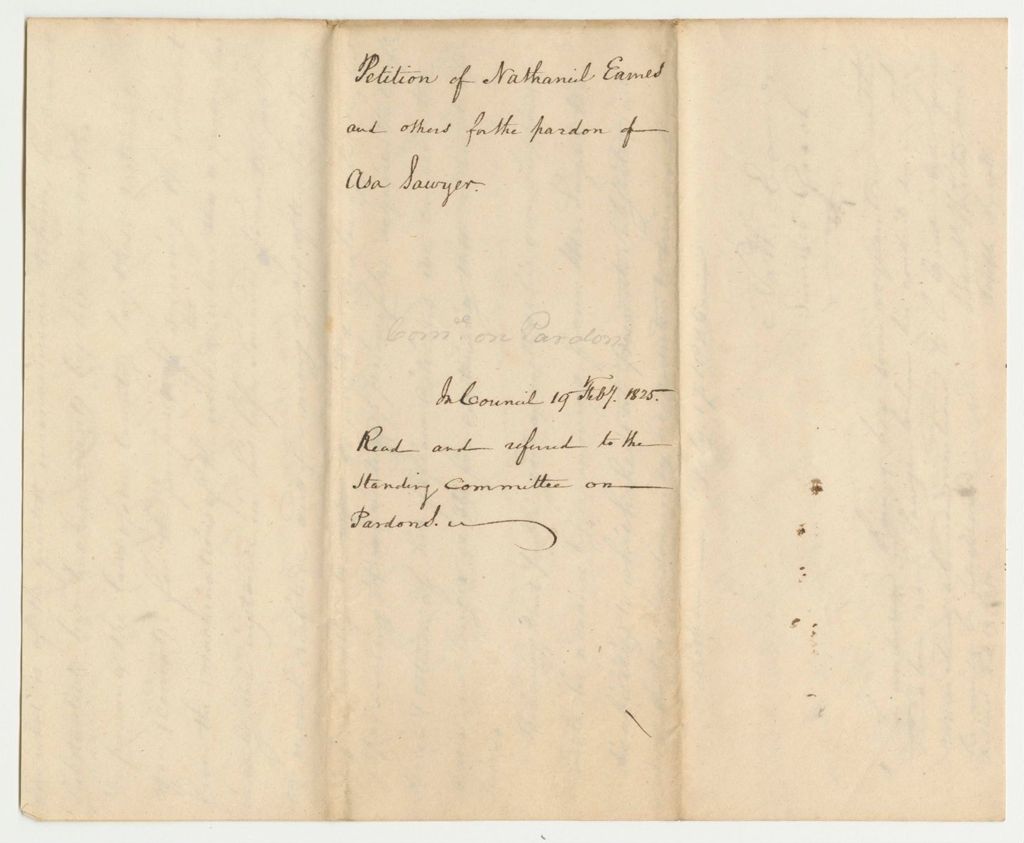 Petition of Nathaniel Eames
and others for the pardon of
Asa Sawyer.
Com^ee on Pardons
In Council 19 Feby. 1825.
Read and referred to the
Standing Committee on
Pardons.